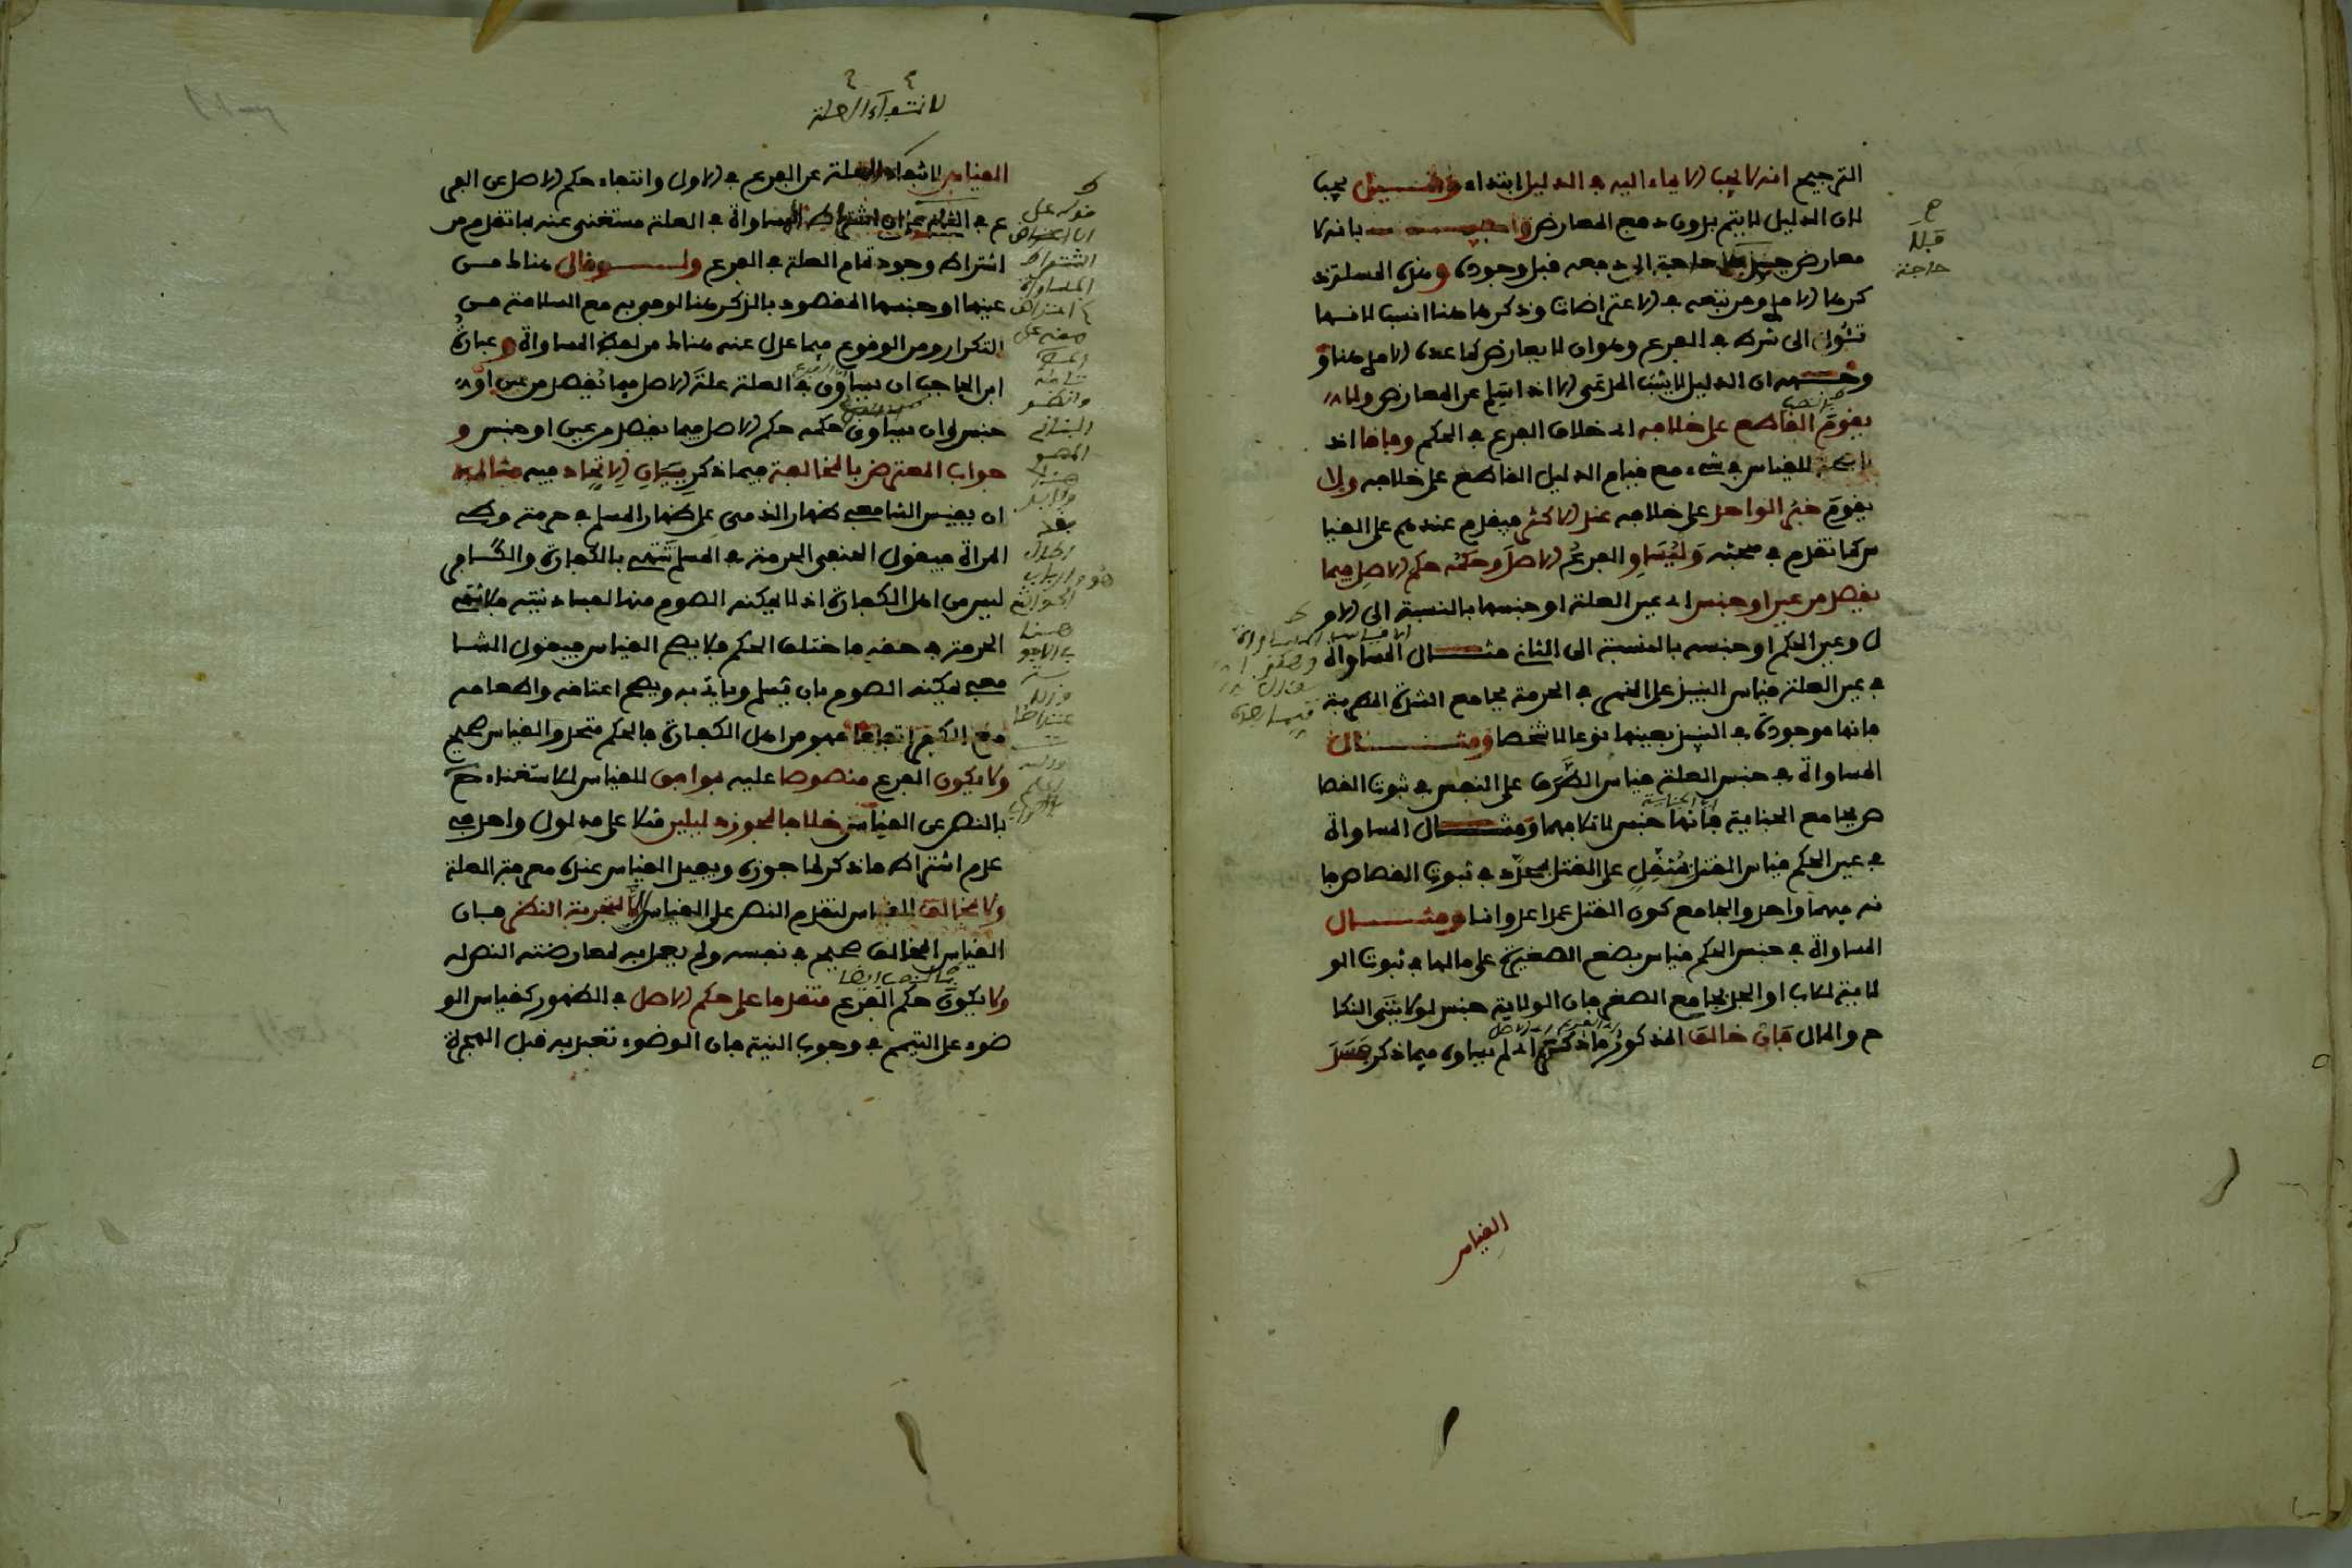 الترجيح انه لا يجب الايماء اليه في الدليل ابتداء وقيل يجب
لان الدليل لا يتم بدون دفع المعارض واجيب بانه لا
معارض حينئذ فلا حاجة الى دفعه قبل وجوده وهذه المسئلة ذ
كرها الامدي ومن تبعه في الاعتراضات وذكرها هنا انسب لانها
تئول الى شرط في الفرع وهو ان لا يعارض كما عده الامدي هنا و
وجهه ان الدليل لا يثبت المدعى الا اذا سلم عن المعارض ولا
يقوم القاطع على خلافه اي خلاف الفرع في الحكم وفاقا اذ
لا صحة للقياس في شيء مع قيام الدليل القاطع على خلافه ولا
يقوم خبر الواحد على خلافه عند الاكثر فيقدم عندهم على القيا
س كما تقدم في مبحثه وليساو الفرع الاصل وحكمه حكم الاصل فيما
يقصد من عين او جنس اي عين العلة او جنسها بالنسبة الى الاو
ل وعين الحكم او جنسه بالنسبة الى الثاني مثال المساواة
في عين العلة قياس النبيذ على الخمر في الحرمة بجامع الشدة المطربة
فانها موجودة في النبيذ بعينها نوعا لا شخصا ومثال
المساواة في جنس العلة قياس الطرف على النفس في ثبوت القصا
ص بجامع الجناية فانها جنس لاتلافهما ومثال المساواة
في عين الحكم قياس القتل بمثقل على القتل بمحدد في ثبوت القصاص فا
نه فيهما واحد والجامع كون القتل عمدا عدوانا ومثال
المساواة في جنس الحكم قياس بضع الصغيرة على مالها في ثبوت الو
لاية للاب او الجد بجامع الصغر فان الولاية جنس لولايتي النكا
ح والمال فان خالف المذكور ما ذكر اي لم يساوه فيما ذكر فسد
ح
قبل
حاجة
القياس
لانتفاء العلة
القياس لانتفاء العلة عن الفرع في الاول وانتفاء حكم الاصل عن الفر
ع في الثاني على ان اشتراط المساواة في العلة مستغنى عنه بما تقدم من
اشتراط وجود تمام العلة في الفرع ولو قال هنا ط من
عينها او جنسها المقصود بالذكر هنا لوفى به مع السلامة من
التكرار ومن الوقوع فيما عدل عنه هنا ط من لفظ المساواة وعبارة
ابن الحاجب ان يساوي في العلة علة الاصل فيما يقصد من عين او
جنس وان يساوي حكمه حكم الاصل فيما يقصد من عين او جنس و
جواب المعترض بالمخالفة فيما ذكر ببيان الاتحاد فيه مثاله
ان يقيس الشافعي ظهار الذمي على ظهار المسلم في حرمة وطء
المراة فيقول الحنفي الحرمة في المسلم تنتهي بالكفارة والكافر
ليس من اهل الكفارة اذ لا يمكنه الصوم منها لفساد نيته فلا تنتهي
الحرمة في حقه فاختلف الحكم فلا يصح القياس فيقول الشا
فعي يمكنه الصوم بان يسلم وياتي به ويصح اعتاقه واطعامه
مع الكفر اتفاقا فهو من اهل الكفارة فالحكم متحد والقياس صحيح
ولا يكون الفرع منصوصا عليه بموافق للقياس للاستغناء ح
بالنص عن القياس خلافا لمجوز دليلين مثلا على مدلول واحد في
عدم اشتراط ما ذكر لما جوزه ويفيد القياس عنده معرفة العلة
ولا بمخالف للقياس لتقدم النص على القياس الا لتجربة النظر فان
القياس المخالف صحيح في نفسه ولم يعمل به لمعارضته النص له
ولا يكون حكم الفرع متقدما على حكم الاصل في الظهور كقياس الو
ضوء على التيمم في وجوب النية فان الوضوء تعبد به قبل الهجرة